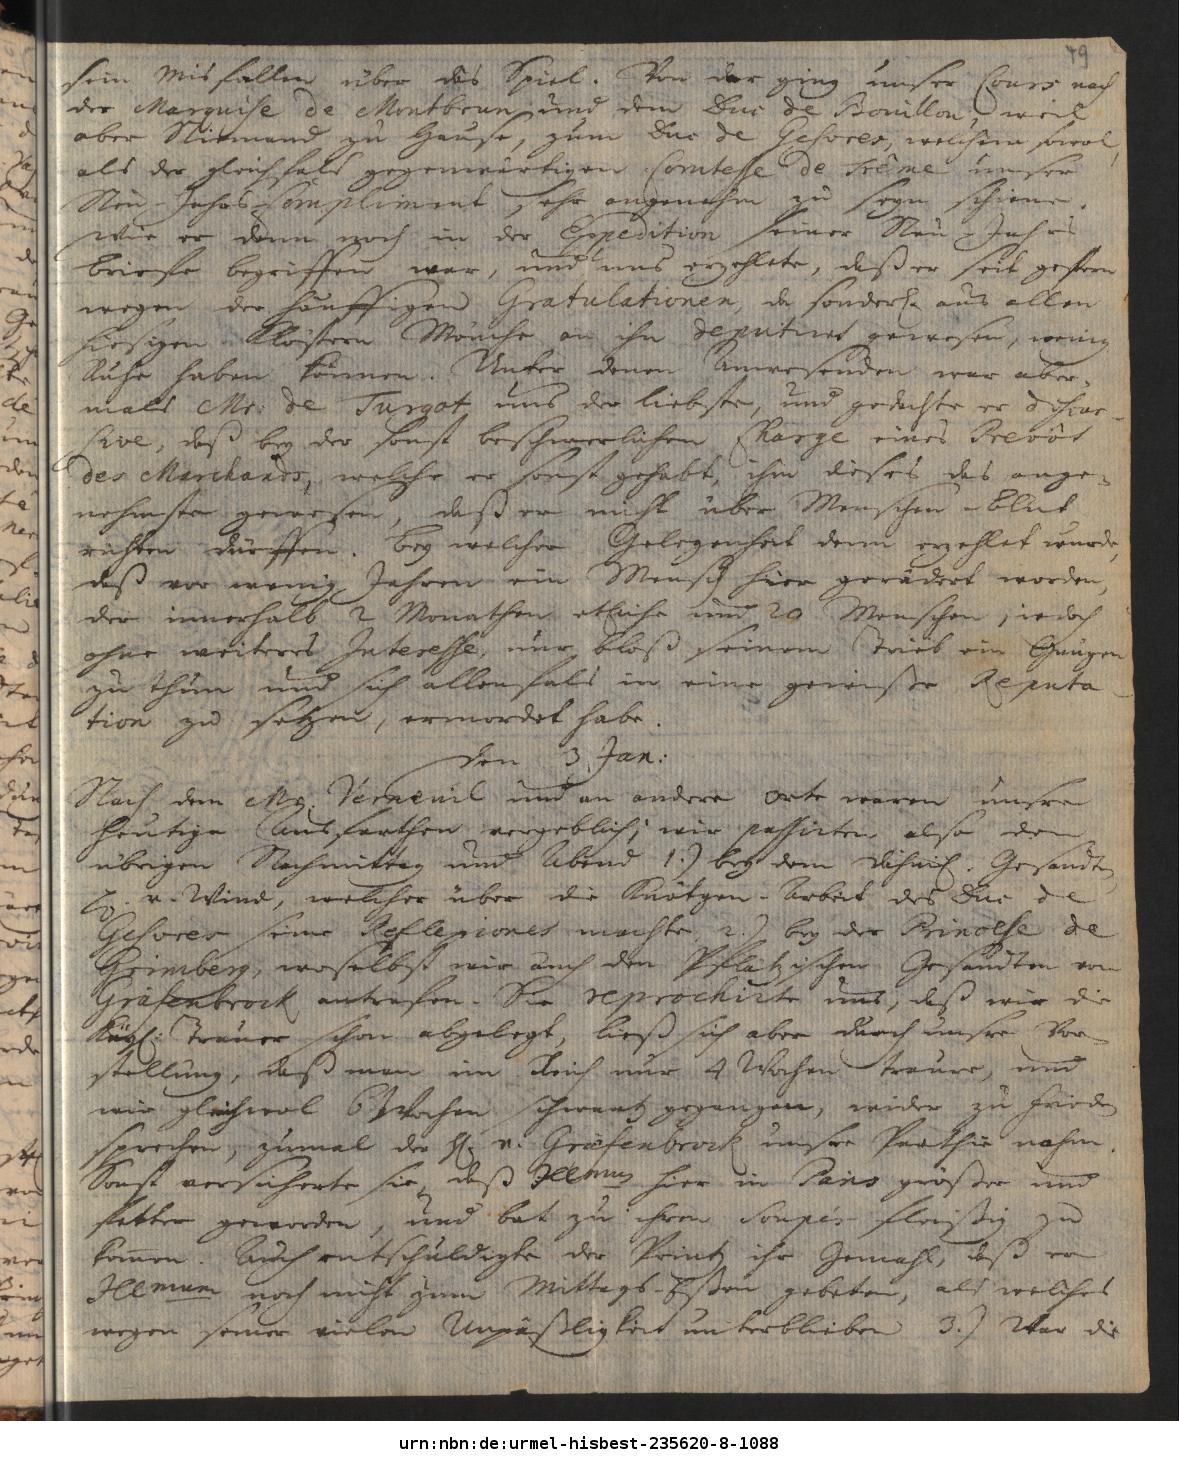 79
sein Misfallen über das Spiel. Von dar ging unser Cours nach
der Marquise de Montbrun und dem Duc de Bouillon, weil
aber Niemand zu Hause, zum Duc de Gesvres, welchem sowol,
als der gleichfals gegenwärtigen Comtesse de Trême unser
Neu-Jahrs-Compliment sehr angenehm zu seyn schiene.
Wie er denn noch in der Expedition seiner Neu-Jahrs
briefe begriffen war, und uns erzehlete, daß er seit gestern
wegen der häuffigen Gratulationen, da sonderl. aus allen
hiesigen Klöstern Mönche an ihn deputiret gewesen, wenig
Ruhe haben können. Unter denen Anwesenden war aber-
mals Mr. de Turgot uns der liebste, und gedachte er
daß bey der sonst beschwerlichen Charge eines Prevôt
des Marchands, welche er sonst gehabt, ihm dieses das ange-
nehmste gewesen, daß er nicht über Menschen-Blut
richten dürffen. Bey welcher Gelegenheit denn erzehlet wurde,
daß vor wenig Jahren ein Mensch hier gerädert worden,
der innerhalb 2 Monathen etliche und 20 Menschen, iedoch
ohne weiteres Interesse, nur bloß seinem Trieb ein Genügen
zu thun und sich allenfals in eine gewisse Reputa-
tion zu setzen, ermordet habe.
den 3. Jan:
Nach dem Mq. Verneuil und an andere Orte waren unsere
heutige Ausfarthen vergeblich; wir passirten also den
übrigen Nachmittag und Abend 1.) bey dem Dähnisch. Gesandten
H. v. Wind, welcher über die Knötgen-Arbeit des Duc de
Gesvres seine Reflexiones machte. 2.) bey der Princesse de
Grimberg, woselbst wir auch den Pfältzischen Gesandten von
Gräfenbrock antrafen. Sie reprochirte uns, daß wir die
Käys: Trauer schon abgelegt, ließ sich aber durch unsre Vor-
stellung, daß man im Reich nur 4 Wochen traure, und
wir gleichwol 6 Wochen schwartz gegangen, wider zu Frieden
sprechen, zumal der H. v. Gräfenbrock unsre Parthie nahm.
Sonst versicherte sie, daß Illmus hier in Paris größer und
fetter geworden, und bat zu ihren Soupés fleißig zu
kom̄en. Auch entschuldigte der Printz ihr Gemahl, daß er
Illmum noch nicht zum Mittags-Eßen gebeten, als welches
wegen seiner vielen Unpäßligkeit unterblieben 3.) War die
urn:nbn:de:urmel-hisbest-235620-8-1088